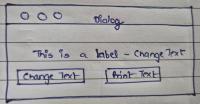 Dialog
This is a label - Change Text
Change Text
Print Text